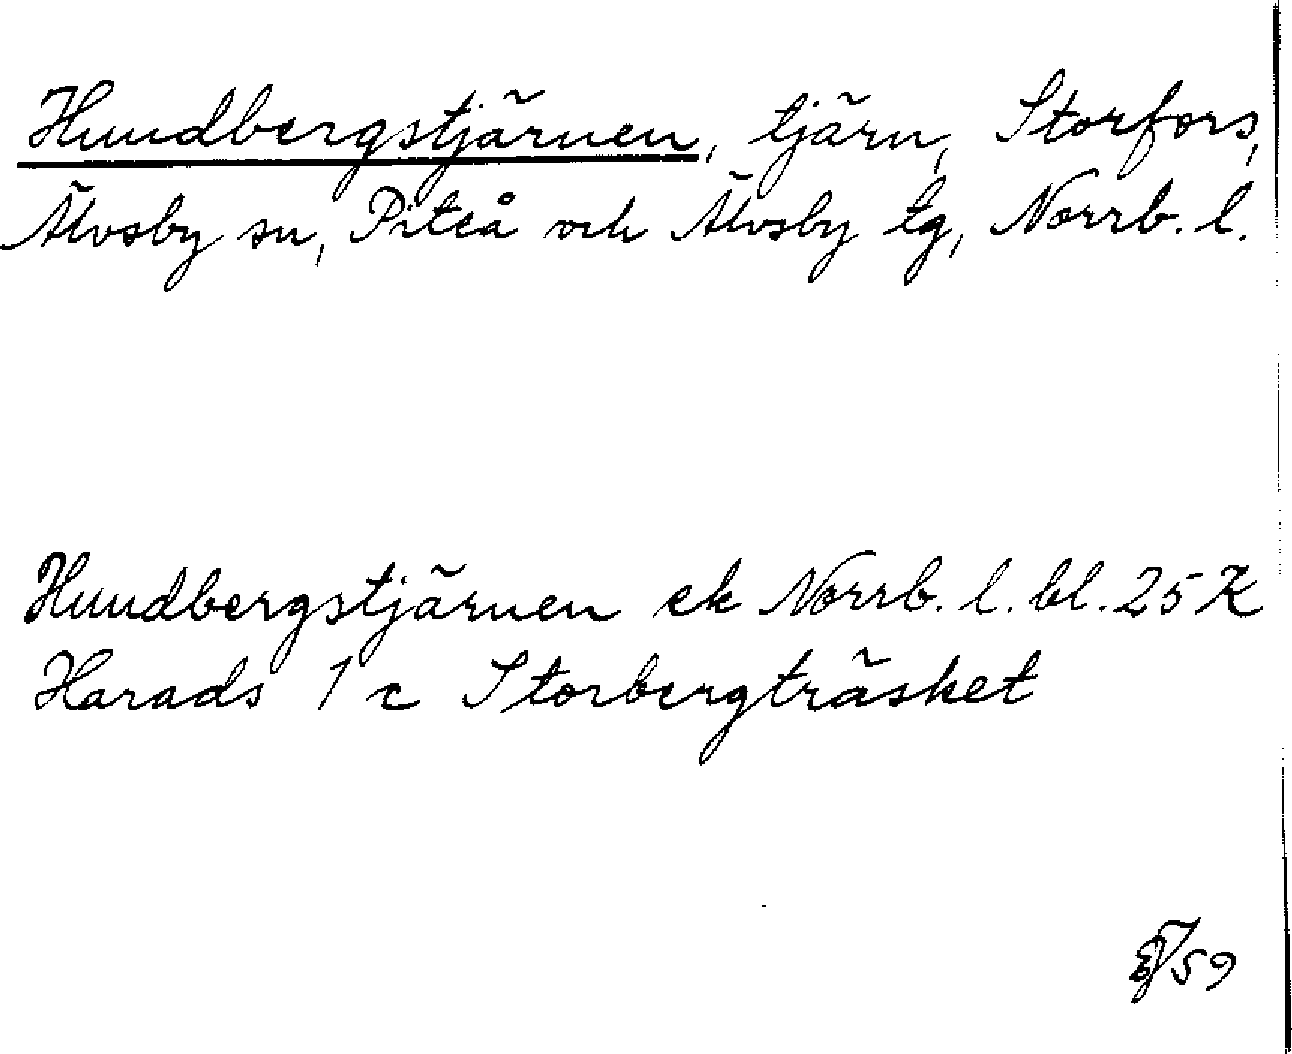 Hundbergstjärnen, tjärn, Storfors,
Älvsby sn, Piteå och Älvsby tg, Norrb. l.
Hundbergstjärnen ek Norrb. l. bl. 25 K
Harads 1 c Storbergträsket
59